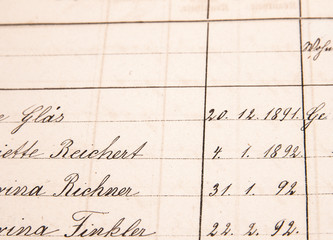 Wohn
e Glás 20. 12. 1891. Ge
iette Reichert 4. 1. 1892
rina Richner 31. 1. 92.
rina Finkler 22. 2. 92.